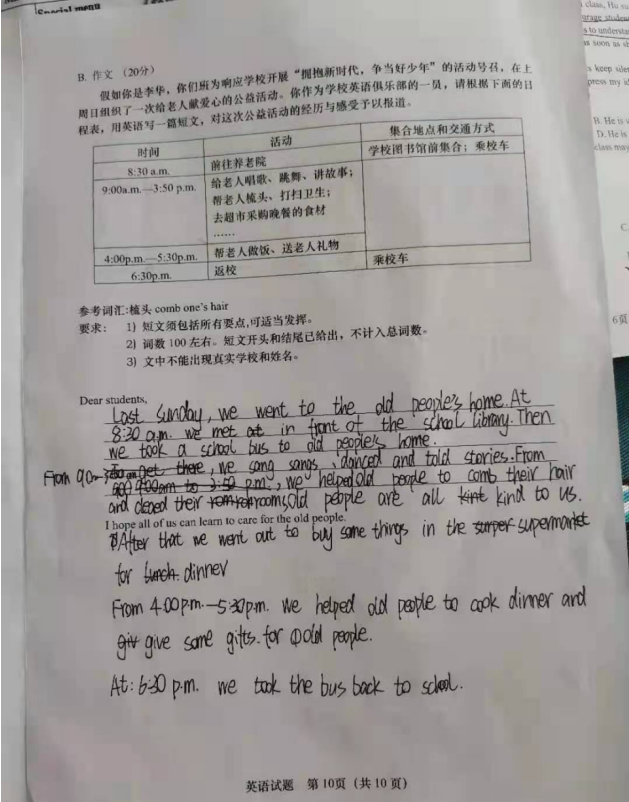 Special menu
B. 作文 (20分)
假如你是李华,你们班为响应学校开展“拥抱新时代,争当好少年”的活动号召,在上
周日组织了一次给老人献爱心的公益活动。你作为学校英语俱乐部的一员,请根据下面的日
程表,用英语写一篇短文,对这次公益活动的经历与感受予以报道。
时间 活动 集合地点和交通方式
8:30 a.m. 前往养老院 学校图书馆前集合;乘校车
9:00a.m.—3:50 p.m. 给老人唱歌、跳舞、讲故事;
帮老人梳头、打扫卫生;
去超市采购晚餐的食材
……
4:00p.m.—5:30p.m. 帮老人做饭、送老人礼物
6:30p.m. 返校 乘校车
参考词汇:梳头 comb one's hair
要求: 1) 短文须包括所有要点,可适当发挥。
2) 词数 100 左右。短文开头和结尾已给出,不计入总词数。
3) 文中不能出现真实学校和姓名。
Dear students,
Last Sunday, we went to the old people's home. At
8:30 a.m. we met at in front of the school library. Then
we took a school bus to old people's home.
From there, we sang sangs, danced and told stories. From
p.m., we helped old people to comb their hair
and cleaned their rooms, Old people are all kind to us.
I hope all of us can learn to care for the old people.
After that we went out to buy some things in the supermarket
for lunch. dinner
From 4:00p.m.—5:30p.m. we helped old people to cook dinner and
giv give some gifts. for old people.
At: 6:30 p.m. we took the bus back to school.
英语试题 第10页 (共10页)
class, Hu
s to understa
as soon as sh
s keep siler
press my id
B. He is
D. He is
class may
C
6页